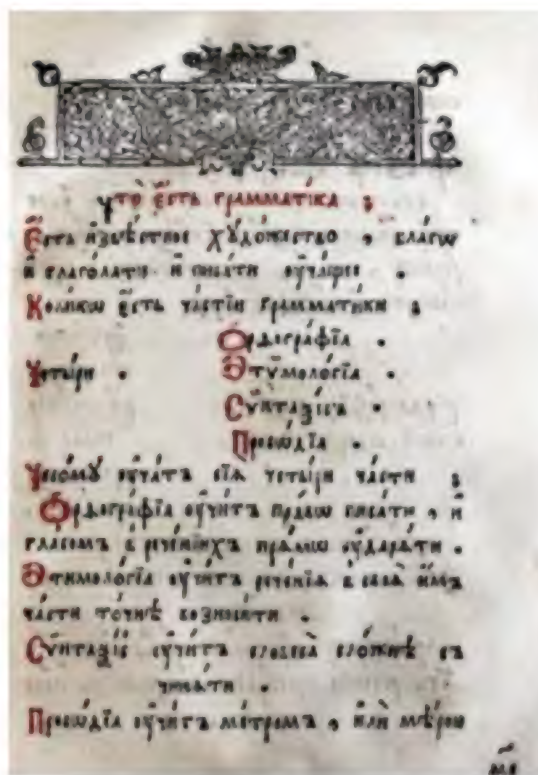 Что̀ є҆́сть грамма́тїка ;
Є҆́сть и҆звѣ́стное хꙋдо́жество , бла́гѡ
и҆ глаго́лати и҆ писа́ти ᲂу҆ча́щее .
Коли́кѡ є҆́сть ча́стїй грамма́тїки ;
Ѻ҆рѳогра́фїа .
Четы́ри . Э҆тѷмоло́гїа .
Сѷ́нтаѯїсъ .
Просѡ́дїа .
Чесомꙋ̀ ᲂу҆ча́тъ сїѧ̀ четы́ри ча́сти ;
Ѻ҆рѳогра́фїа ᲂу҆чи́тъ пра́вѡ писа́ти , и҆
гла́сомъ в рече́нїихъ прѧ́мѡ ᲂу҆дарѧ́ти .
Э҆тимоло́гїа ᲂу҆чи́тъ рече́нїѧ в своѧ̀ и҆̀мъ
ча́сти то́чнѣ возноси́ти .
Сѷнтаѯі́съ ᲂу҆чи́тъ словеса̀ сло́жнѣ съ
чинѧ́ти .
Просѡ́дїа ᲂу҆чи́тъ ме́тромъ , и҆лѝ мѣ́рою